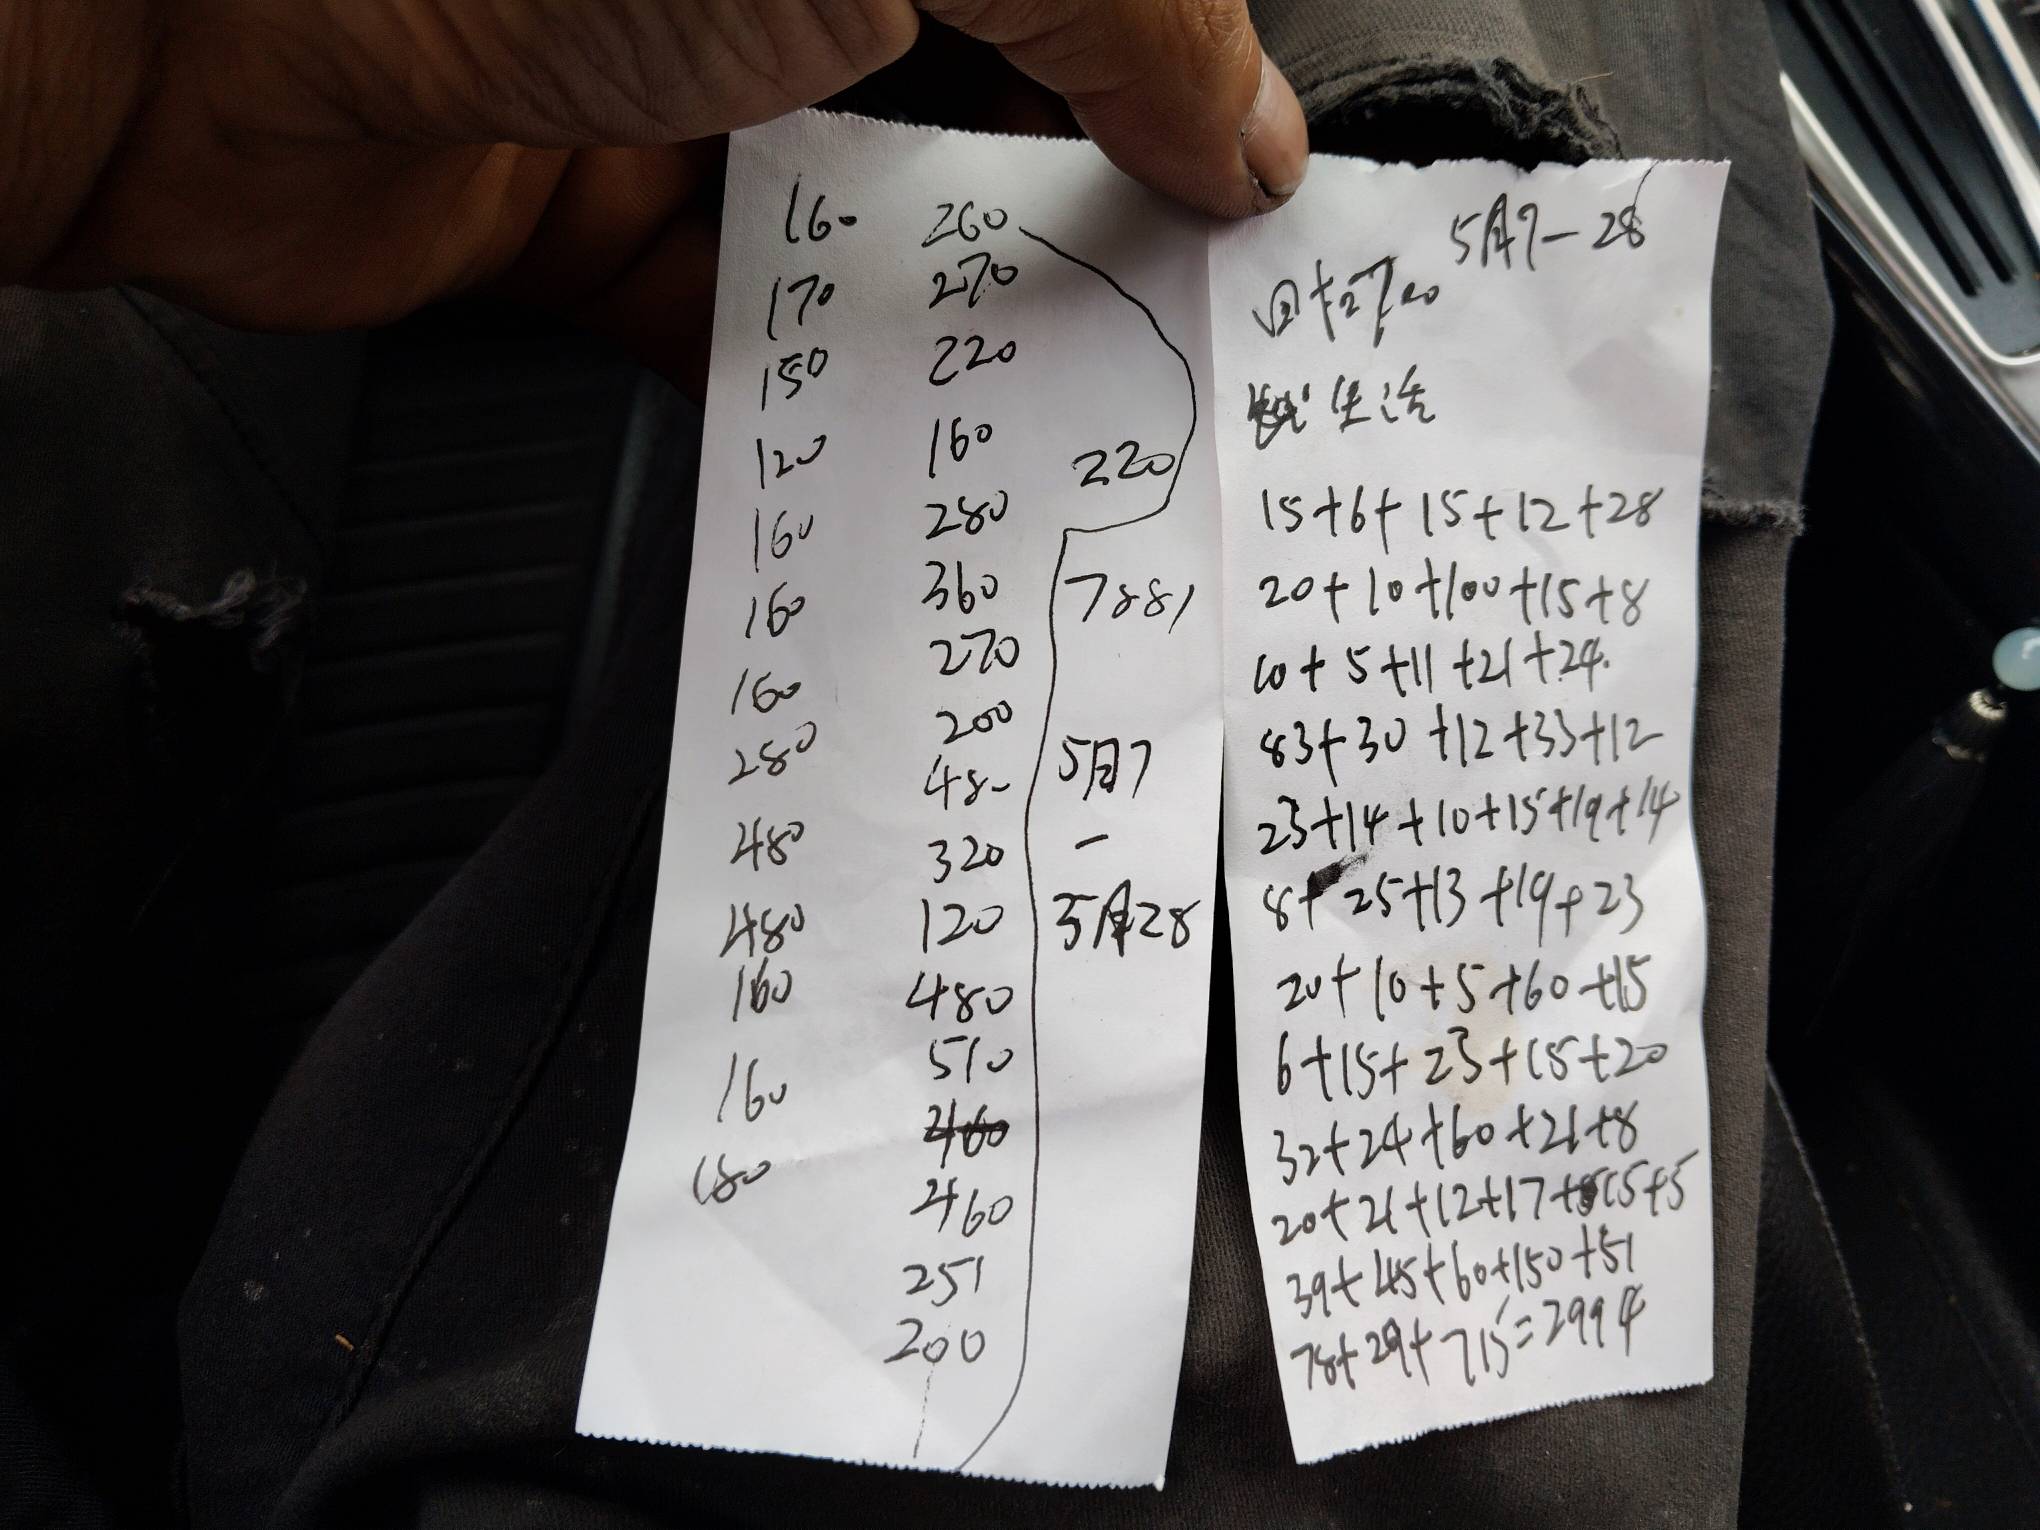 160 260
170 270
150 220
120 160
220
160 280
160 360
7881
160 270
280 200
5月7
480 480
-
480 320
5月28
160 120
160 480
180 510
460
460
251
200
5月7-28
回卡2700
生活
15+6+15+12+28
20+10+100+15+8
10+5+11+21+24
83+30+12+33+12
23+14+10+15+19+14
8+25+13+19+23
20+10+5+60+15
6+15+23+15+20
32+24+60+21+8
20+21+12+17+15+5
39+45+60+150+51
78+29+715=2994